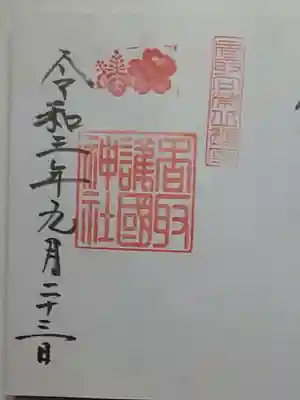 香取
護國
神社
令和三年九月二十三日